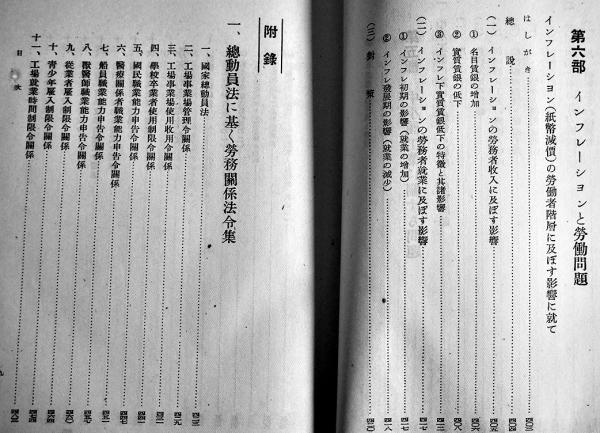 第六部 インフレーションと勞働問題
インフレーション(紙幣減價)の勞働者階層に及ぼす影響に就て
はしがき
總說
(一) インフレーションの勞務者收入に及ぼす影響
① 名目賃銀の增加
② 實質賃銀の低下
③ インフレ下實質賃銀低下の特徵と其諸影響
(二) インフレーションの勞務者就業に及ぼす影響
① インフレ初期の影響(就業の增加)
② インフレ發展期の影響(就業の減少)
(三) 對策
附錄
一、總動員法に基く勞務關係法令集
一、國家總動員法
二、工場事業場管理令關係
三、工場事業場使用收用令關係
四、學校卒業者使用制限令關係
五、國民職業能力申告令關係
六、醫療關係者職業能力申告令關係
七、船員職業能力申告令關係
八、獸醫師職業能力申告令關係
九、從業者雇入制限令關係
十、靑少年雇入制限令關係
十一、工場就業時間制限令關係
目次
九